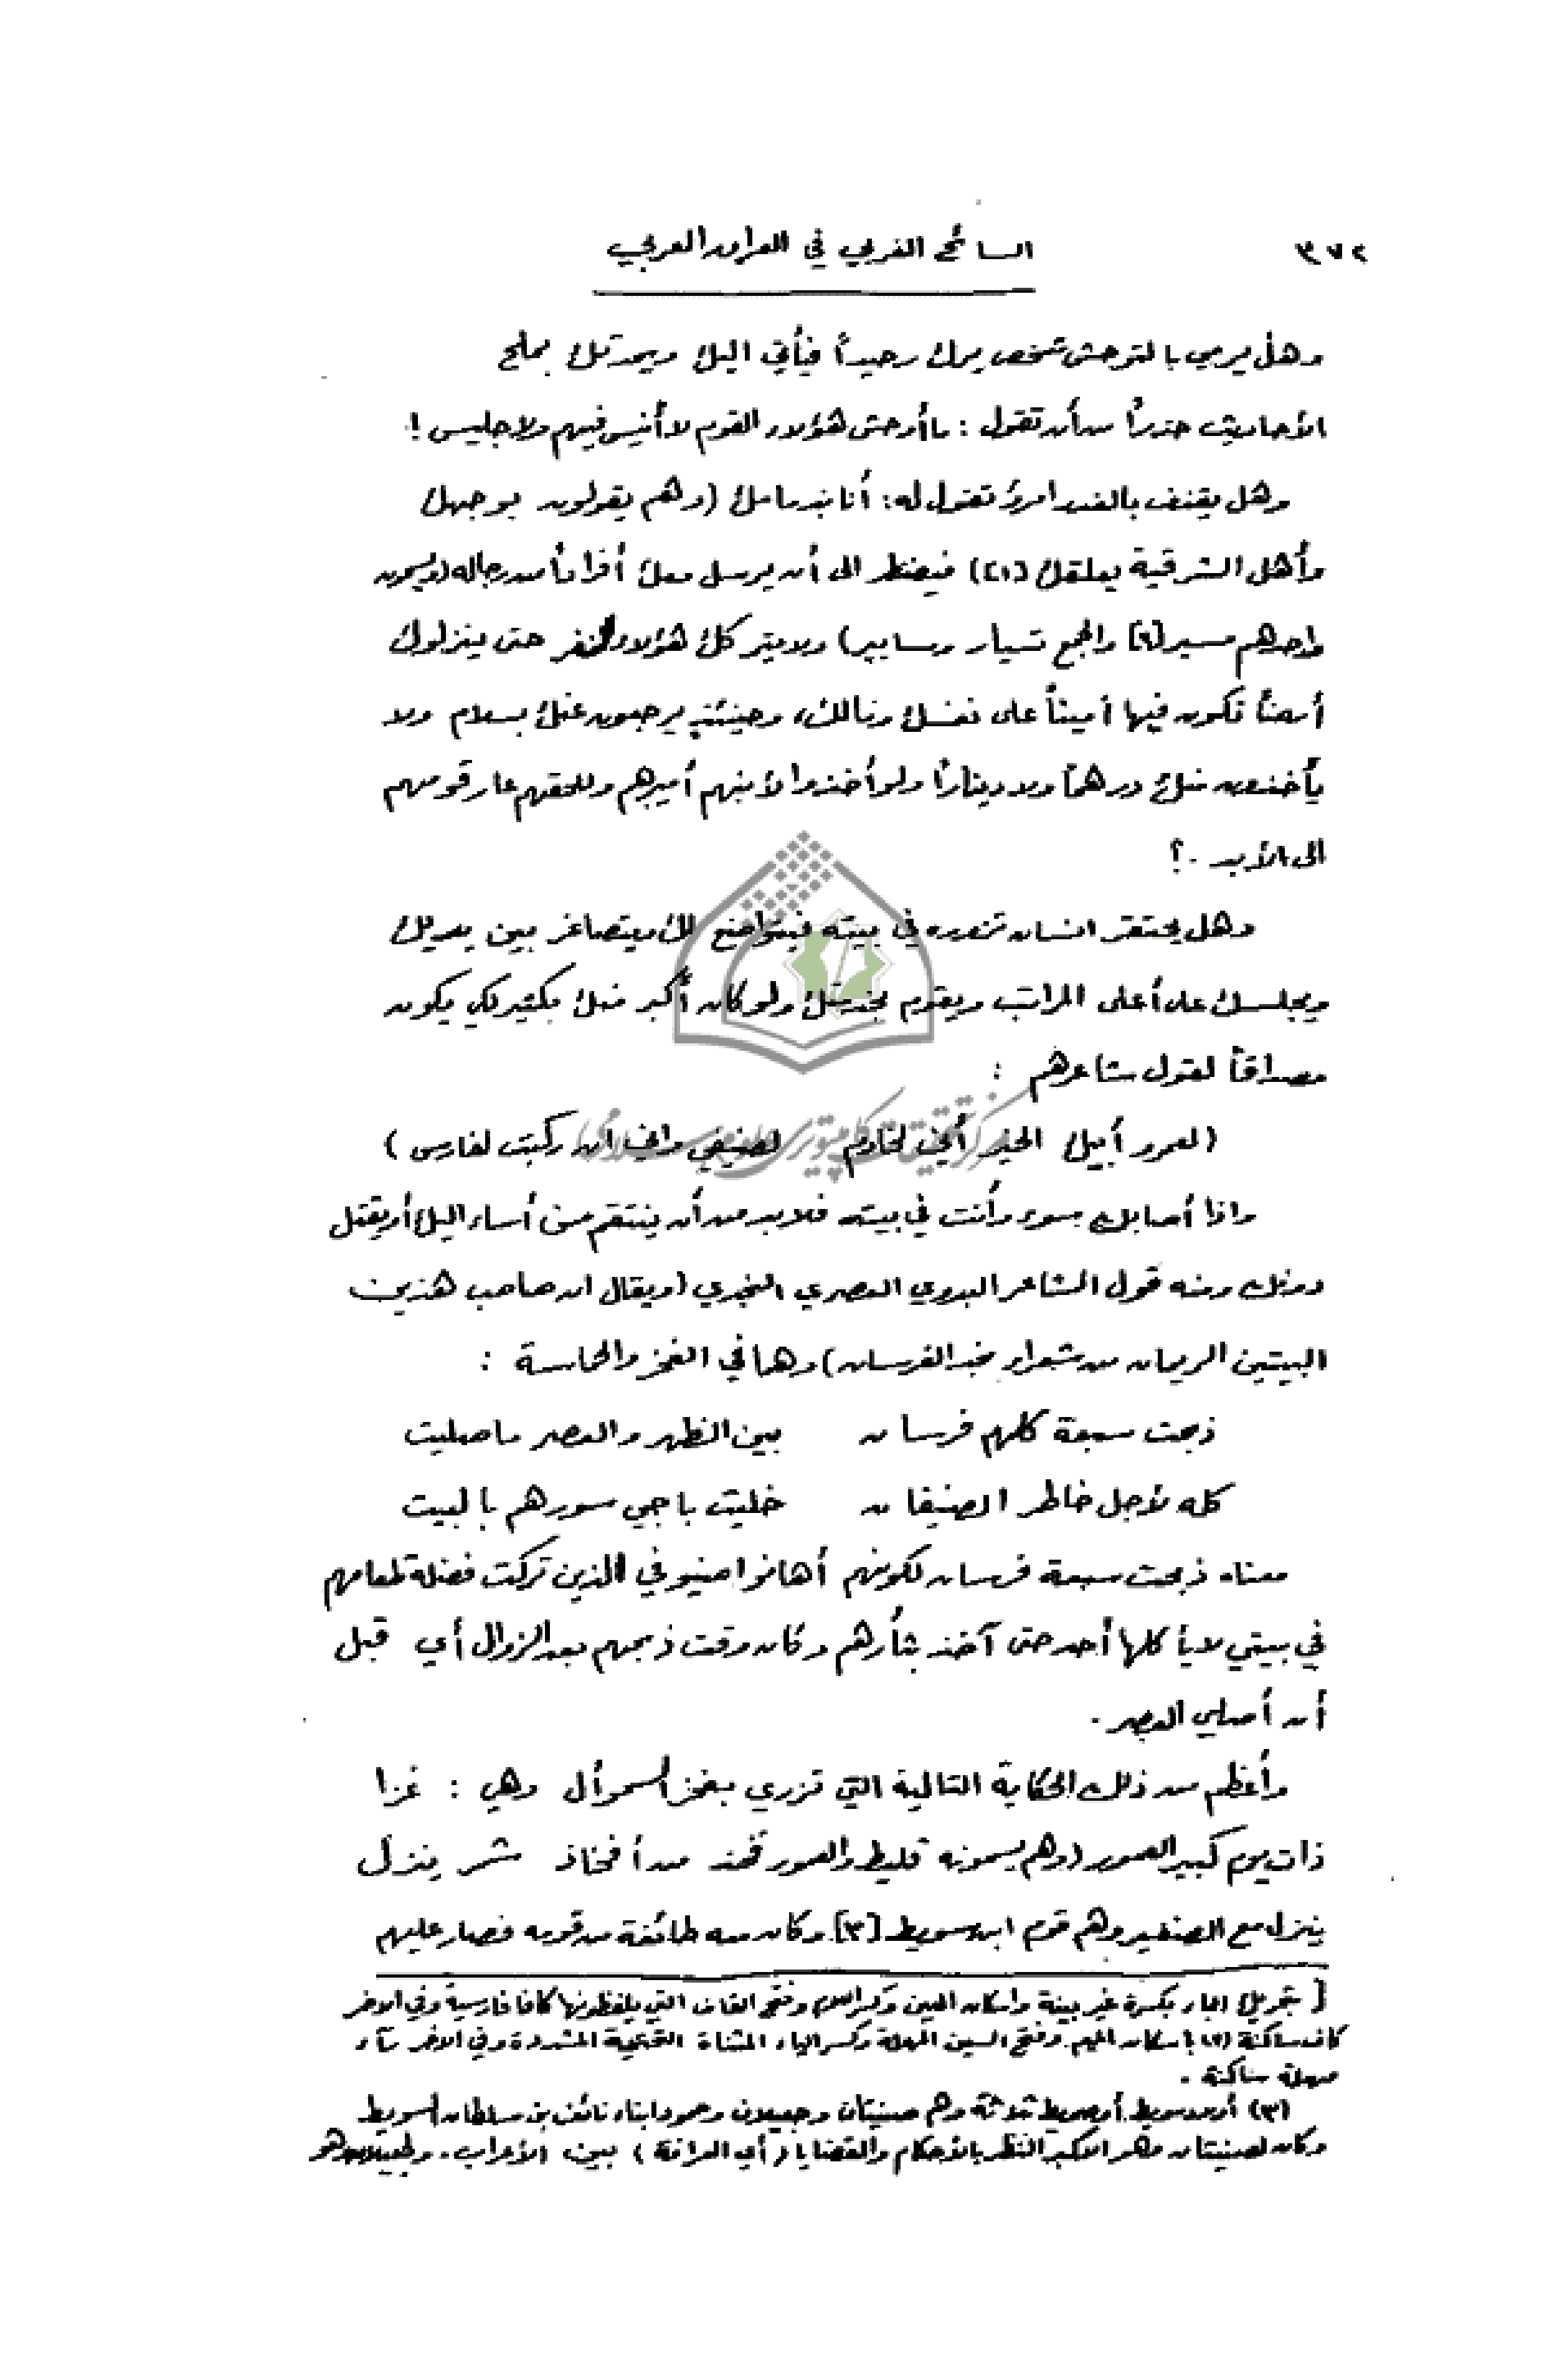 ٣٧٢ السائح الغربي في العراق العربي
وهل يرمى بالتوحش شخص يراك وحيداً فيأتي اليك ويحدثك بملح
الأحاديث حذراً من أن تقول : ما أوحش هؤلاء القوم لا أنيس فيهم ولا جليس !
وهل يقذف بالغدر امرؤ تقول له : أنا بذمامك (وهم يقولون بوجهك
وأهل الشرقية يعلقك [١]) فيضطر الى أن يرسل معك أفراداً من رجاله (ويسمون
واحدهم مسير [٢] والجمع تسيار ومسايير) ولا يتركك هؤلاء النفر حتى ينزلوك
أرضاً تكون فيها أميناً على نفسك ومالك، وحينئذٍ يرجعون عنك بسلام ولا
يأخذون منك درهماً ولا ديناراً ولو أخذوا لأنبهم أميرهم وللحقهم عار قومهم
الى الأبد . ؟
وهل يحتقر انسان تزوره في بيته فيتواضع لك ويتصاغر بين يديك
ويجلسك على أعلى المراتب ويقوم بخدمتك ولو كان أكبر منك بكثير لكي يكون
مصداقاً لقول شاعرهم :
(لعمرو أبيك الخير أني لخادم لضيفي واني ان ركبت لفارس )
واذا أصابك سوء وأنت في بيته فلا بد من أن ينتقم ممن أساء اليك أو يقتل
دونك ومنه قول الشاعر البدوي العصري النجدي (ويقال ان صاحب هذين
البيتين الريحان من شعراء نجد الفرسان) وهما في الفخر والحماسة :
ذبحت سبعة كلهم فرسان بين الظهر والعصر ما صليت
كله لأجل خاطر الضيفان خليت باجي سورهم بالبيت
معناه ذبحت سبعة فرسان لكونهم أهانوا ضيوفي الذين تركت فضلة طعامهم
في بيتي لا يأكلها أحد حتى آخذ بثأرهم وكان وقت ذبحهم بعد الزوال أي قبل
أن أصلي العصر .
وأعظم من ذلك الحكاية التالية التي تزري بفخر السموأل وهي : غزا
ذات يوم كبير العمور (وهم يسمونه قليط والعمور فخذ من أفخاذ شمر ينزل
ينزل مع الضفير وهم قوم ابن سويط [٣] وكان معه طائفة من قومه فصار عليهم
[ بتحريك الباء بكسرة غير بينة واسكان العين وكسر اللام وفتح القاف التي يلفظونها كافا فارسية وفي الاخر
كاف ساكنة (٢) باسكان الميم وفتح السين المهملة وكسر الياء المثناة التحتية المشددة وفي الاخر رآء
مهملة ساكنة .
(٣) أولاد سويط أو صويط ثلاثة وهم صنيتان وجعيلان وحمود ابناء نائف بن سلطان السويط
وكان لصنيتان وهو الاكبر النظر بالأحكام والقضايا (أي العرافة ) بين الأعراب . ولجعيلان وهو
مركز تحقيقات كامپيوتری علوم اسلامی